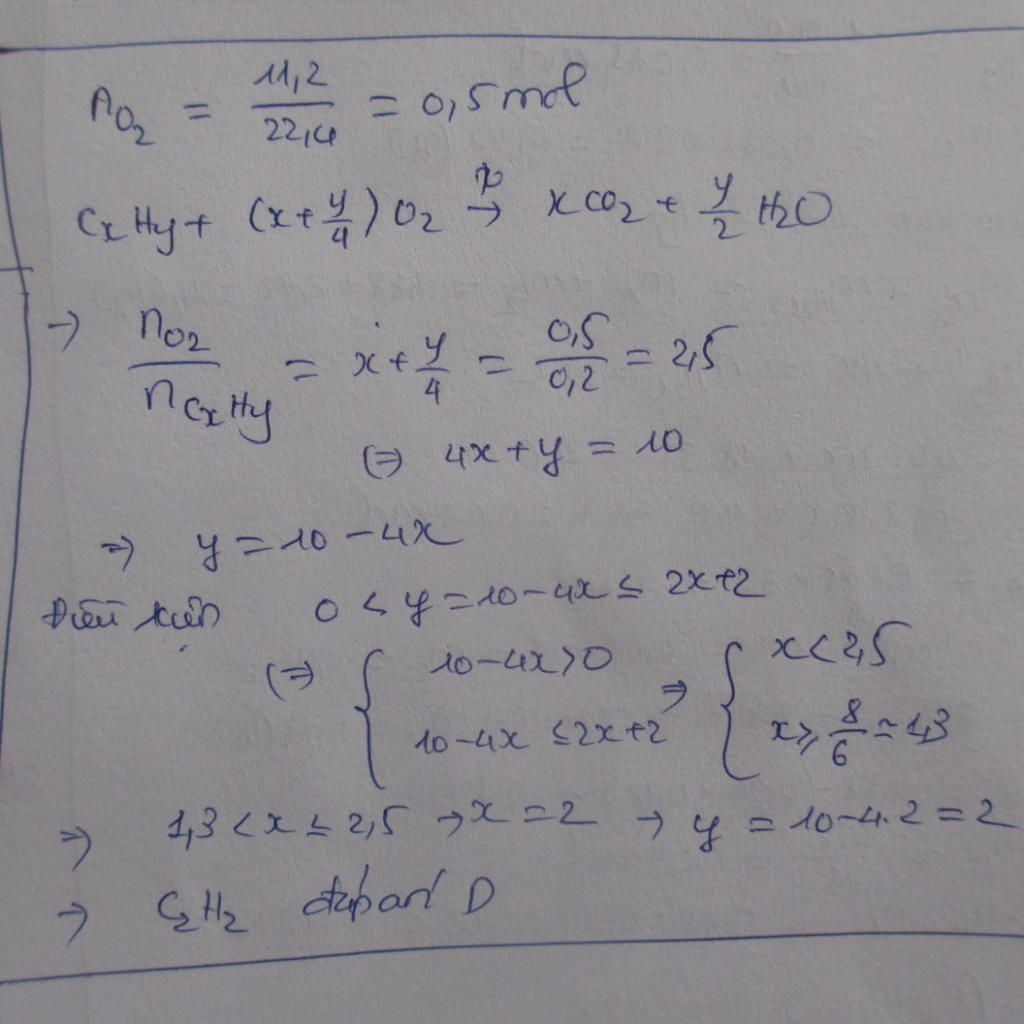 nO2 = 11,2/22,4 = 0,5 mol
CxHy + (x+y/4) O2 →(t°) xCO2 + y/2 H2O
→ nO2/nCxHy = x + y/4 = 0,5/0,2 = 2,5
(=) 4x + y = 10
=) y = 10 - 4x
Điều kiện 0 < y = 10 - 4x ≤ 2x+2
(=) { 10-4x > 0 =) { x < 2,5
10-4x ≤ 2x+2 x ≥ 8/6 ≃ 1,3
=) 1,3 < x ≤ 2,5 → x = 2 → y = 10-4.2 = 2
→ C2H2 đáp án D